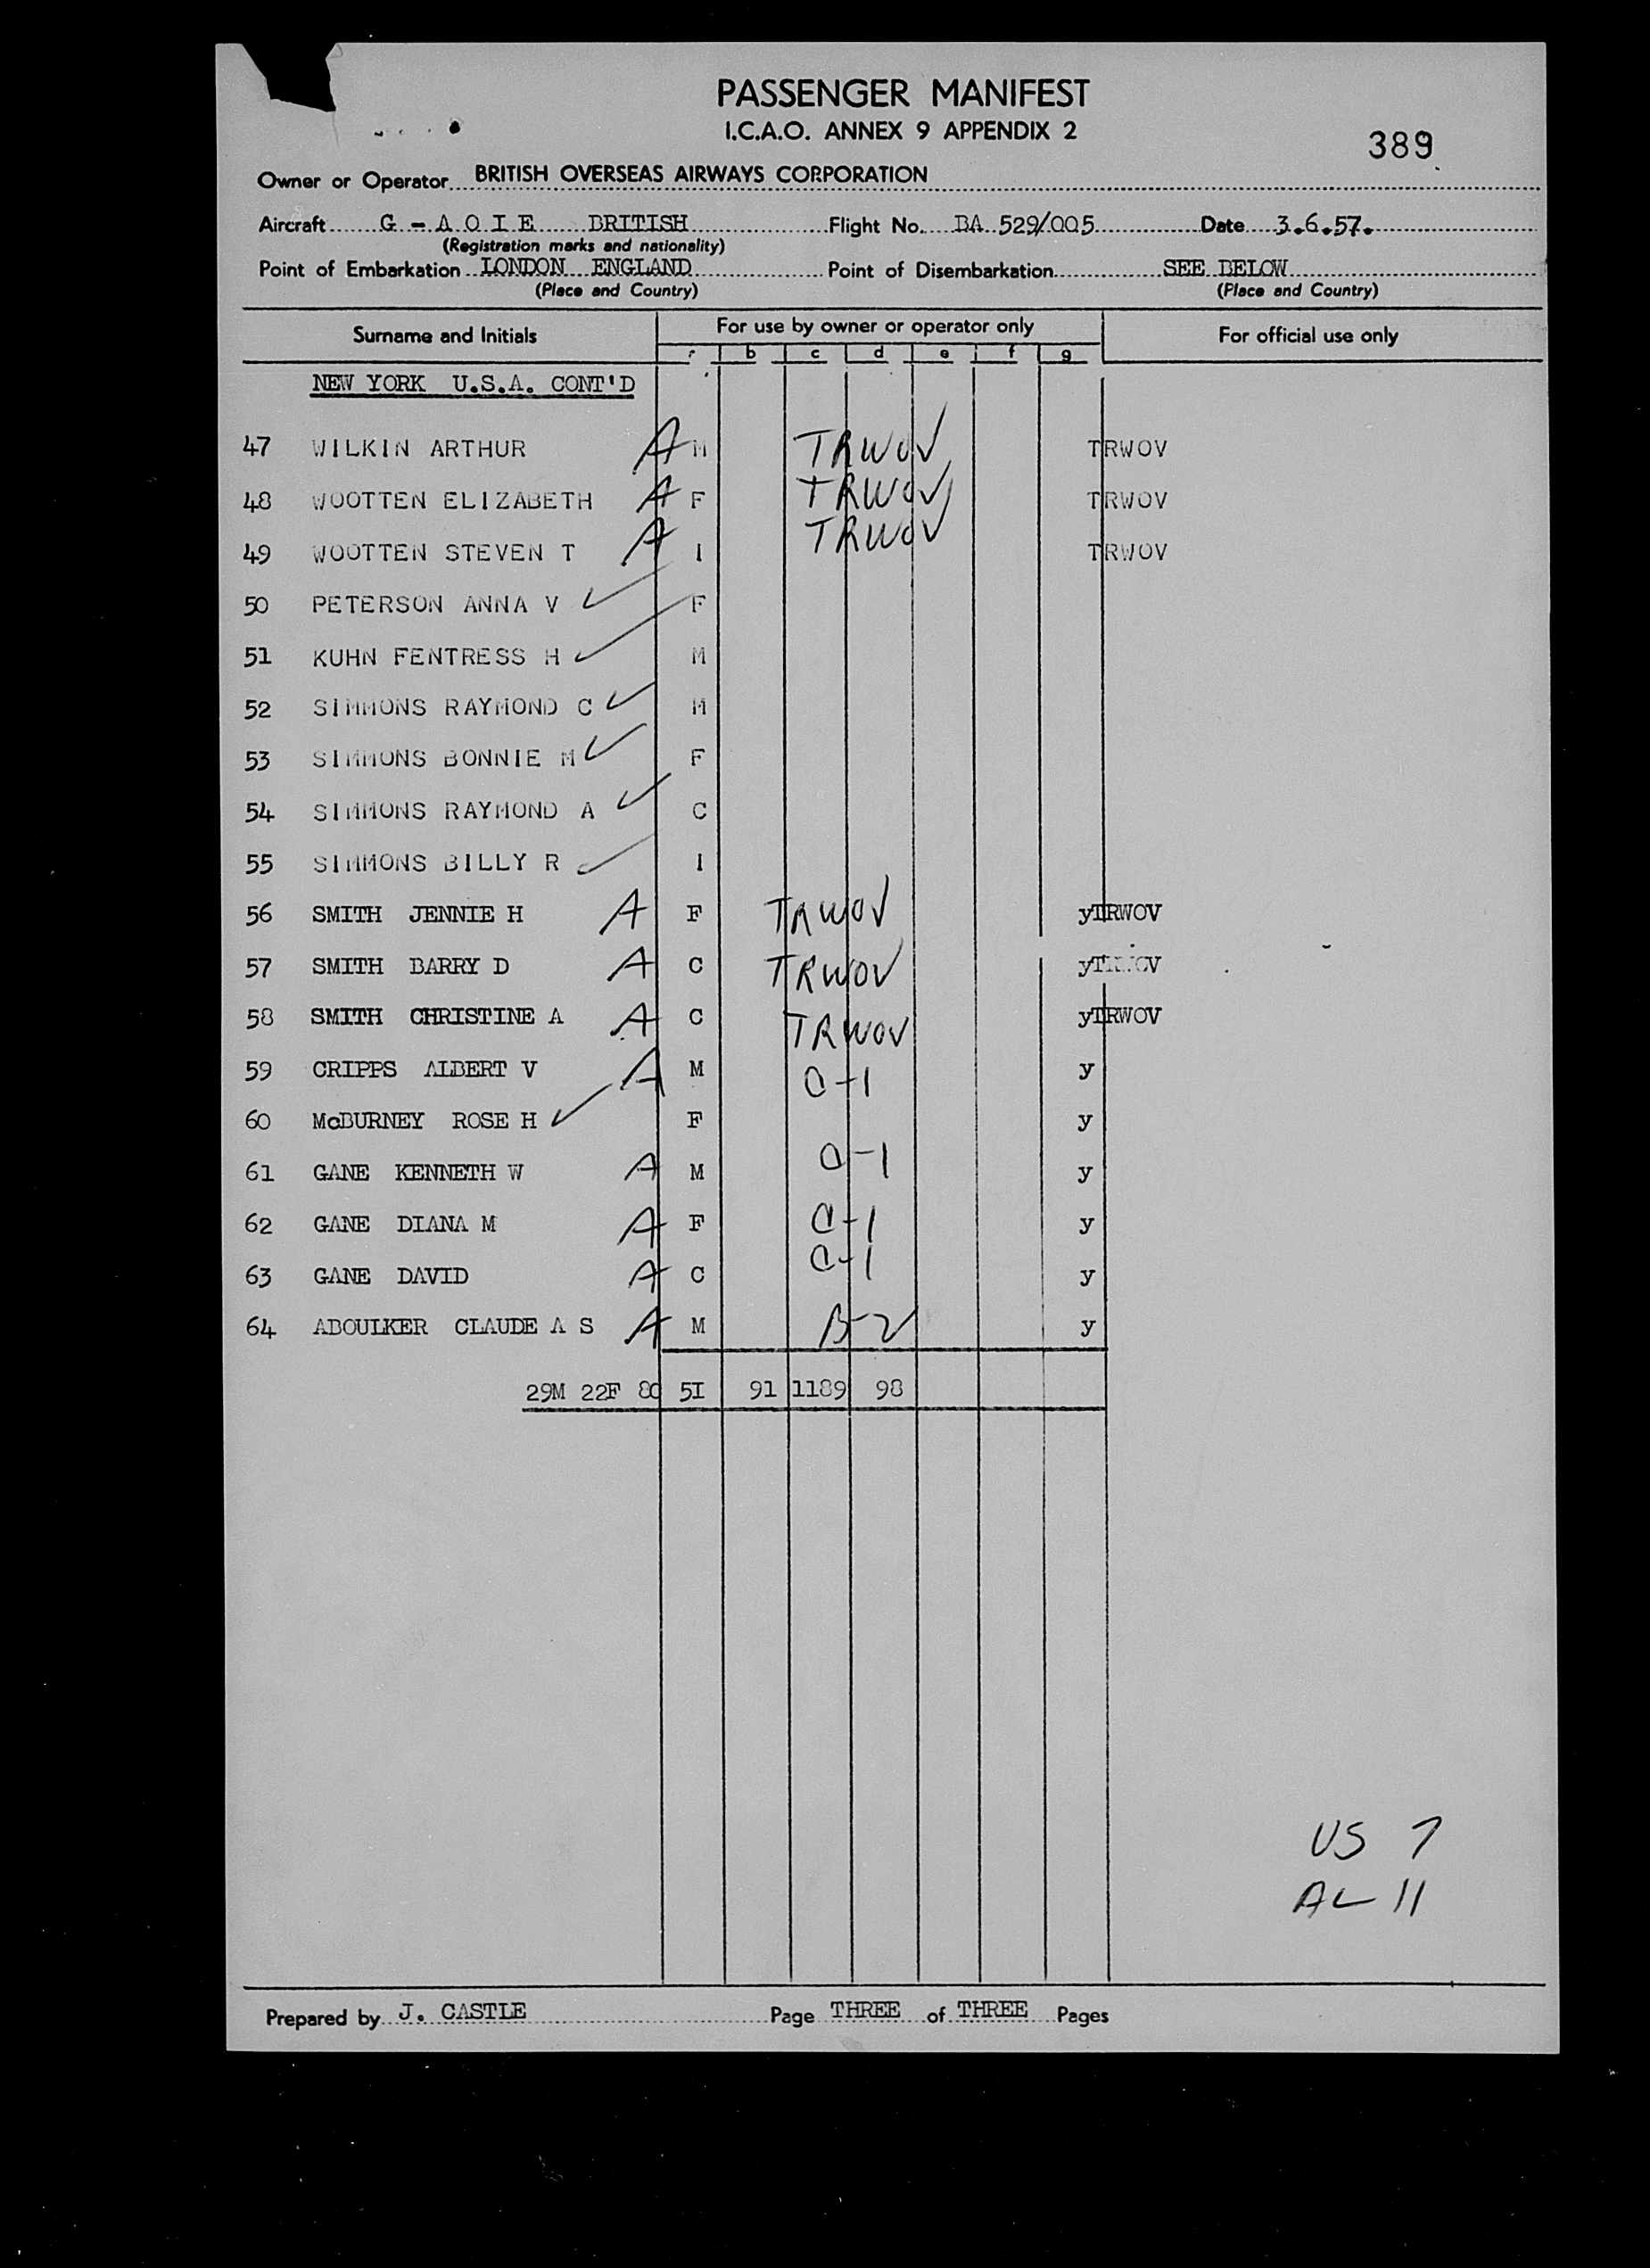 PASSENGER MANIFEST
I.C.A.O. ANNEX 9 APPENDIX 2
389
Owner or Operator BRITISH OVERSEAS AIRWAYS CORPORATION
Aircraft G - A O I E BRITISH Flight No. BA 529/005 Date 3.6.57.
(Registration marks and nationality)
Point of Embarkation LONDON ENGLAND Point of Disembarkation SEE BELOW
(Place and Country) (Place and Country)
Surname and Initials For use by owner or operator only For official use only
b c d e f g
NEW YORK U.S.A. CONT'D
47 WILKIN ARTHUR A M TRWOV TRWOV
48 WOOTTEN ELIZABETH A F TRWOV TRWOV
49 WOOTTEN STEVEN T A I TRWOV TRWOV
50 PETERSON ANNA V ✓ F
51 KUHN FENTRESS H ✓ M
52 SIMMONS RAYMOND C ✓ M
53 SIMMONS BONNIE M ✓ F
54 SIMMONS RAYMOND A ✓ C
55 SIMMONS BILLY R ✓ I
56 SMITH JENNIE H A F TRWOV yTRWOV
57 SMITH BARRY D A C TRWOV yTRWOV
58 SMITH CHRISTINE A A C TRWOV yTRWOV
59 CRIPPS ALBERT V A M C-1 y
60 McBURNEY ROSE H ✓ F y
61 GANE KENNETH W A M C-1 y
62 GANE DIANA M A F C-1 y
63 GANE DAVID A C C-1 y
64 ABOULKER CLAUDE A S A M B-2 y
29M 22F 8C 5I 91 1189 98
US 7
AL 11
Prepared by J. CASTLE Page THREE of THREE Pages